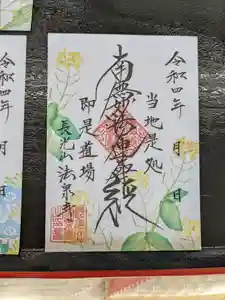 令和四年　月　日
当地是処
南無妙法蓮華経
即是道場
長光山法泉寺
令和四年　月　日